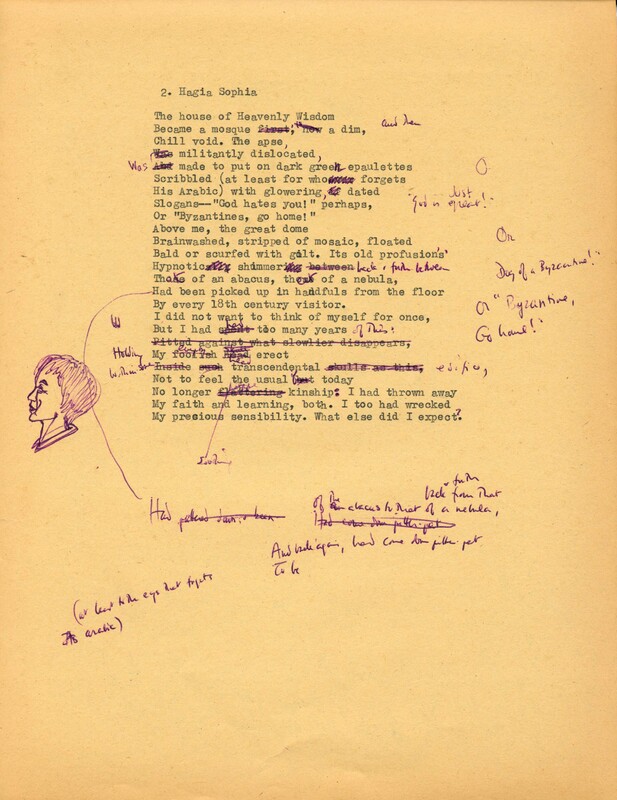 2. Hagia Sophia
The house of Heavenly Wisdom
Became a mosque first; now a dim, and then
Chill void. The apse,
Was militantly dislocated,
Was And made to put on dark green epaulettes
Scribbled (at least for who forgets
His Arabic) with glowering, dated
Slogans--"God hates you!" perhaps,
"God is great!"
Or "Byzantines, go home!"
Or
Above me, the great dome
Brainwashed, stripped of mosaic, floated
Dog of a Byzantine!"
Bald or scurfed with gilt. Its old profusion's
Hypnotic shimmer between back & forth between
That of an abacus, that of a nebula,
Had been picked up in handfuls from the floor
Or "Byzantine,
By every 18th century visitor.
Go home!"
I did not want to think of myself for once,
But I had spent too many years of this:
Pitted against what slowlier disappears,
Holding
My foolish head erect
Within
Inside such transcendental skulls as this, edifice,
Not to feel the usual today
No longer flattering kinship: I had thrown away
My faith and learning, both. I too had wrecked
My precious sensibility. What else did I expect?
Had
back & forth
of the abacus to that of a nebula,
from that
Had come down pitter-pat
And back again, had come down pitter-pat
To be
(at least to the eye that forgets
Its arabic)